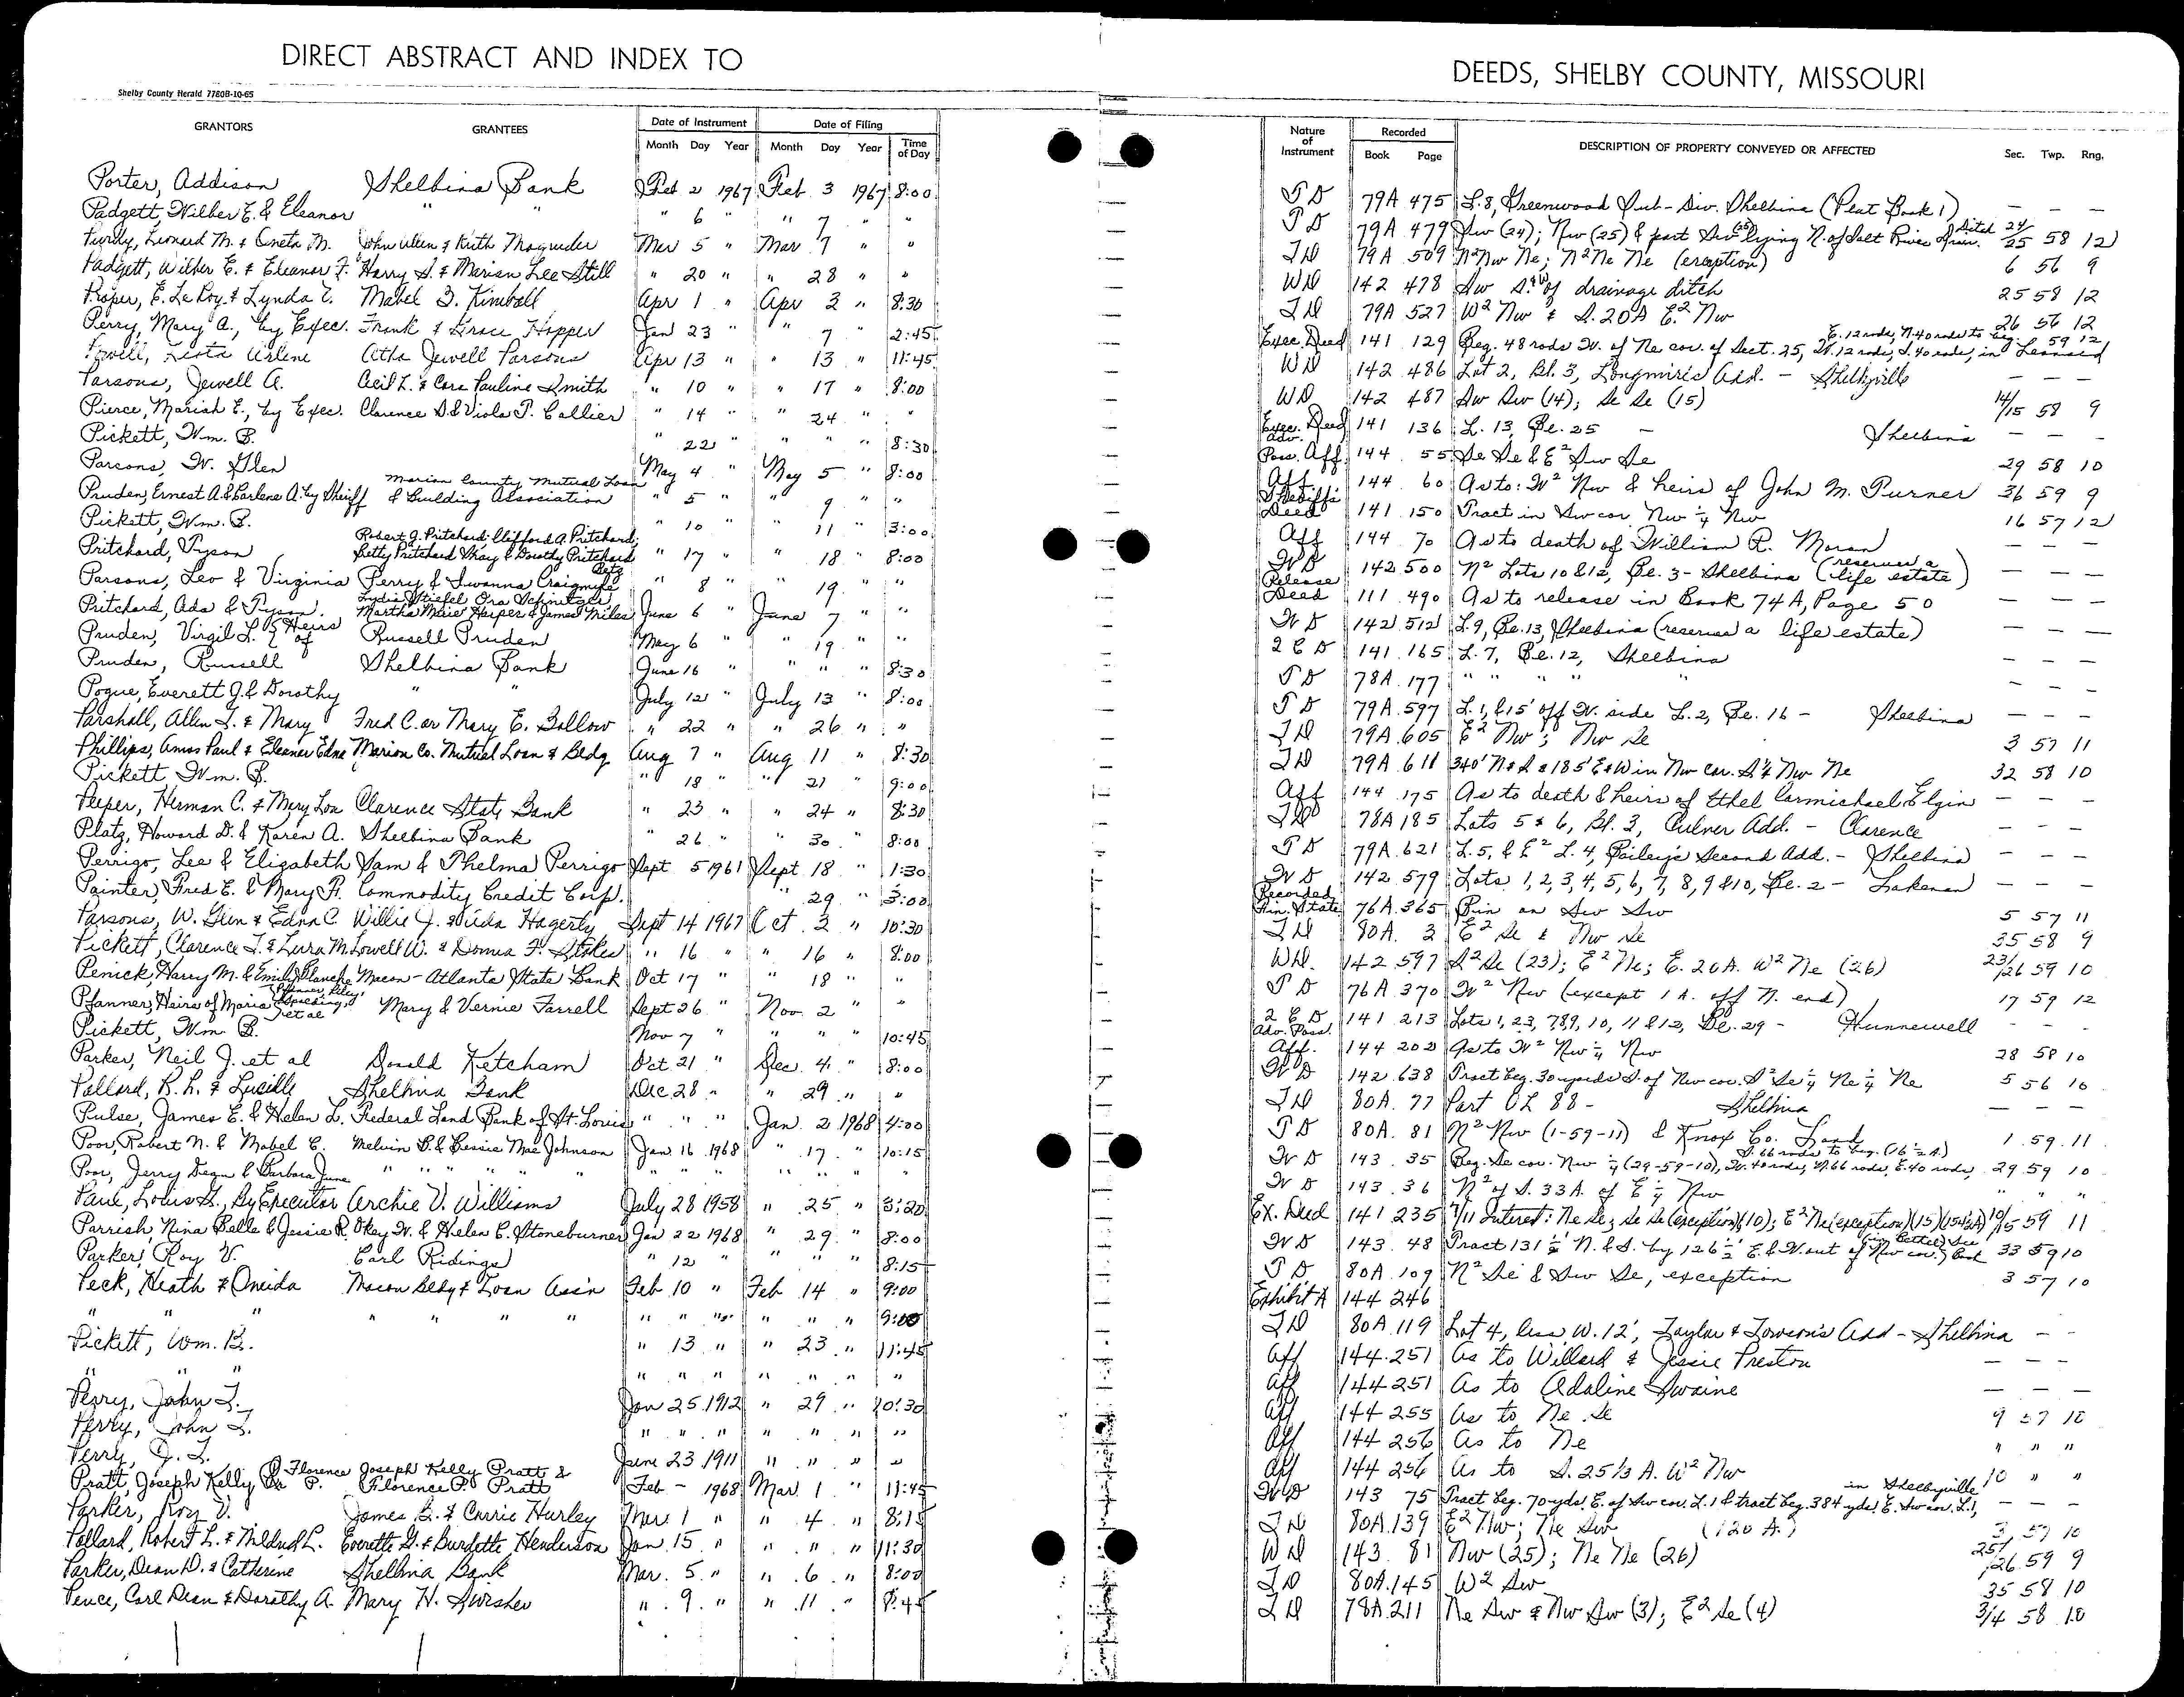 DIRECT ABSTRACT AND INDEX TO
Shelby County Herald 7780B-10-65
GRANTORS GRANTEES Date of Instrument Date of Filing
Month Day Year Month Day Year Time of Day
Porter, Addison Shelbina Bank Feb 2 1967 Feb. 3 1967 8:00
Padgett, Wilber E. & Eleanor " " " 6 " " 7 " "
Purdy, Leonard M. & Oneta M. John Allen & Ruth Magruder Mar 5 " Mar 7 " "
Padgett, Wilber E. & Eleanor F. Harry S. & Marian Lee Still " 20 " " 28 " "
Proper, E. LeRoy & Lynda E. Mabel I. Kimball Apr 1 " Apr 3 " 8:30
Perry, Mary A., by Exec. Frank & Grace Hopper Jan 23 " " 7 " 2:45
Powell, Zesta Arlene Atha Jewell Parsons Apr 13 " " 13 " 11:45
Parsons, Jewell A. Cecil L. & Cora Pauline Smith " 10 " " 17 " 8:00
Pierce, Mariah E., by Exec. Clarence D. & Viola P. Collier " 14 " " 24 " "
Pickett, Wm. B. " 22 " " " " 8:30
Parsons, W. Glen May 4 " May 5 " 8:00
Pruden, Ernest A. & Earlene A. by Sheriff Marion County Mutual Loan & Building Association " 5 " " 9 " "
Pickett, Wm. B. " 10 " " 11 " 3:00
Pritchard, Tyson Robert J. Pritchard; Clifford A. Pritchard; Betty Pritchard Shay & Dorothy Pritchard Betz " 17 " " 18 " 8:00
Parsons, Leo & Virginia Perry & Iwanna Craigmyle " 8 " " 19 " "
Pritchard, Ada & Tyson. Lydia Stiefel Ora Schnitzer Martha Marie Harper & James Miles June 6 " June 7 " "
Pruden, Virgil L. Heirs of Russell Pruden May 6 " " 19 " "
Pruden, Russell Shelbina Bank June 16 " " " " 8:30
Pogue, Everett J. & Dorothy " " July 12 " July 13 " 8:00
Parshall, Allen L. & Mary Fred C. or Mary E. Ballow " 22 " " 26 " "
Phillips, Amos Paul & Eleanor Edna Marion Co. Mutual Loan & Bldg Aug 7 " Aug 11 " 8:30
Pickett Wm. B. " 18 " " 21 9:00
Peeper, Herman C. & Mary Lou Clarence State Bank " 23 " " 24 " 8:30
Platz, Howard D. & Karen A. Shelbina Bank " 26 " " 30 " 8:00
Perrigo, Lee & Elizabeth Sam & Thelma Perrigo Sept 5 1961 Sept 18 " 1:30
Painter, Fred E. & Mary H. Commodity Credit Corp. " 29 " 3:00
Parsons, W. Glen & Edna C. Willie J. & Aida Hagerty Sept 14 1967 Oct. 2 " 10:30
Pickett, Clarence T. & Lura M. Lowell W. & Donna F. Stokes " 16 " " 16 " 8:00
Penick, Harry M. & Emily Blanche Macon-Atlanta State Bank Oct 17 " " 18 " "
Pfanner, Heirs of Maria et al Mary & Vernie Farrell Sept 26 " Nov. 2 " "
Pickett, Wm. B. Nov 7 " " " 10:45
Parker, Neil J. et al Donald Ketcham Oct 21 " Dec. 4 " 8:00
Pollard, R. L. & Lucille Shelbina Bank Dec 28 " " 29 " "
Pulse, James E. & Helen L. Federal Land Bank of St. Louis " " " Jan. 2 1968 4:00
Poor, Robert N. & Mabel C. Melvin B. & Bessie Mae Johnson Jan. 16 1968 " 17 " 10:15
Poor, Jerry Dean & Barbara June " " " " " " " " " " "
Paul, Lotus G., By Executor Archie V. Williams July 28 1958 " 25 " 3:20
Parrish, Nina Belle & Jessie R. Okey W. & Helen C. Stoneburner Jan 22 1968 " 29 " 8:00
Parker, Roy V. Carl Ridings " 12 " " " 8:15
Peck, Heath & Oneida Macon Bldg & Loan Ass'n Feb 10 " Feb 14 " 9:00
" " " " " " " " " " " " " 9:00
Pickett, Wm. B. " 13 " " 23 " 11:45
" " " " " " " " " "
Perry, John L. Jan 25 1912 " 29 " 10:30
Perry, John L. " " " " " " "
Perry, J. L. June 23 1911 " " " "
Pratt, Joseph Kelly & Florence P. Joseph Kelly Pratt & Florence P. Pratt Feb - 1968 Mar. 1 " 11:45
Parker, Roy V. James B. & Carrie Hurley Mar 1 " " 4 " 8:15
Pollard, Robert L. & Mildred L. Everette G. & Burdette Henderson Jan. 15 " " " " 11:30
Parker, Dean D. & Catherine Shelbina Bank Mar. 5 " " 6 " 8:00
Pence, Carl Dean & Dorothy A. Mary H. Swisher " 9 " " 11 " 8:45
DEEDS, SHELBY COUNTY, MISSOURI
Nature of Instrument Recorded DESCRIPTION OF PROPERTY CONVEYED OR AFFECTED Sec. Twp. Rng.
Book Page
T D 79A 475 L. 8, Greenwood Sub-Div. Shelbina (Plat Book 1) - - -
T D 79A 479 Sw (24); Nw (25) & part Sw (25) lying N. of Salt River drain. Ditch 24/25 58 12
T D 79A 509 N² Nw Ne; N² Ne Ne (exception) 6 56 9
WD 142 478 Sw S. & W of drainage ditch 25 58 12
T D 79A 527 W² Nw & S. 20A E² Nw 26 56 12
Exec. Deed 141 129 Beg. 48 rods W. of Ne cor. of Sect. 25, W. 12 rods, S. 40 rods, E. 12 rods, N. 40 rods to beg. in Leonard 59 12
WD 142 486 Lot 2, Bl. 3, Longmire's Add. - Shelbyville - - -
WD 142 487 Sw Sw (14); Se Se (15) 14/15 58 9
Exec. Deed 141 136 L. 13, Bl. 25 - Shelbina - - -
Adv. Poss. Aff. 144 55 Se Se & E² Sw Se 29 58 10
Aff. 144 60 As to: W² Nw & heirs of John M. Turner 36 59 9
Sheriff's Deed 141 150 Tract in Sw cor. Nw ¼ Nw 16 57 12
Aff 144 70 As to death of William R. Moran - - -
WD 142 500 N² Lots 10 & 12, Bl. 3 - Shelbina (reserves a life estate) - - -
Release Deed 111 490 As to release in Book 74A, Page 50 - - -
WD 142 512 L. 9, Bl. 13, Shelbina (reserves a life estate) - - -
2 C D 141 165 L. 7, Bl. 12, Shelbina - - -
T D 78A 177 " " " " " - - -
T D 79A 597 L. 1, & 15' off W. side L. 2, Bl. 16 - Shelbina - - -
T D 79A 605 E² Nw; Nw Se 3 57 11
T D 79A 611 340' N & S & 185' E & W in Nw cor. S½ Nw Ne 32 58 10
Aff 144 175 As to death & heirs of Ethel Carmichael Elgin - - -
T D 78A 185 Lots 5 & 6, Bl. 3, Culver Add. - Clarence - - -
T D 79A 621 L. 5, & E² L. 4, Bailey's Second Add. - Shelbina - - -
WD 142 579 Lots 1, 2, 3, 4, 5, 6, 7, 8, 9 & 10, Bl. 2 - Lakenan - - -
Recorded Fin. State 76A 365 Bin on Sw Sw 5 57 11
T D 80A 2 E² Se & Nw Se 35 58 9
WD. 142 597 S² Se (23); E² Ne; E. 20A. W² Ne (26) 23/26 59 10
T D 76A 370 W² Nw (except 1 A. off N. end) 17 59 12
2 C D 141 213 Lots 1, 2, 3, 7, 8, 9, 10, 11 & 12, Bl. 29 - Hunnewell - - -
Adv. Poss. Aff. 144 202 As to W² Nw ¼ Nw 28 58 10
WD 142 638 Tract beg. 30 yards S. of Nw cor. S² Se ¼ Ne ¼ Ne 5 56 10
T D 80A 77 Part OL 88 - Shelbina - - -
T D 80A 81 N² Nw (1-59-11) & Knox Co. Land 1 59 11
WD 143 35 Beg. Se cor. Nw ¼ (29-59-10), W. 40 rods, N. 66 rods, E. 40 rods, S. 66 rods to beg. (16 ½ A.) 29 59 10
WD 143 36 N² of S. 33A. of E ½ Nw " " "
Ex. Deed 141 235 1/11 Interest: Ne Se; Se Se (exception) (10); E² Ne (exception) (15) 10/15 59 11
WD 143 48 Tract 131 ½' N. & S. by 126 ½' E. & W. out of Nw cor. (in Bethel) See Book 33 59 10
T D 80A 109 N² Se & Sw Se, exception 3 57 10
Exhibit A 144 246
T D 80A 119 Lot 4, less W. 12', Taylor & Towson's Add - Shelbina - -
Aff 144 251 As to Willard & Jessie Preston - - -
Aff 144 251 As to Adaline Swaine - - -
Aff 144 255 As to Ne Se 9 57 10
Aff 144 256 As to Ne " " "
Aff 144 256 As to S. 25⅓ A. W² Nw 10 " "
WD 143 75 Tract beg. 70 yds. E. of Sw cor. L. 1 & tract beg. 38¼ yds. E. Sw cor. L. 1, in Shelbyville - - -
T D 80A 139 E² Nw; Ne Sw (120 A.) 3 57 10
WD 143 81 Nw (25); Ne Ne (26) 25/26 59 9
T D 80A 145 W² Sw 35 58 10
T D 78A 211 Ne Sw & Nw Sw (3); E² Se (4) 3/4 58 10